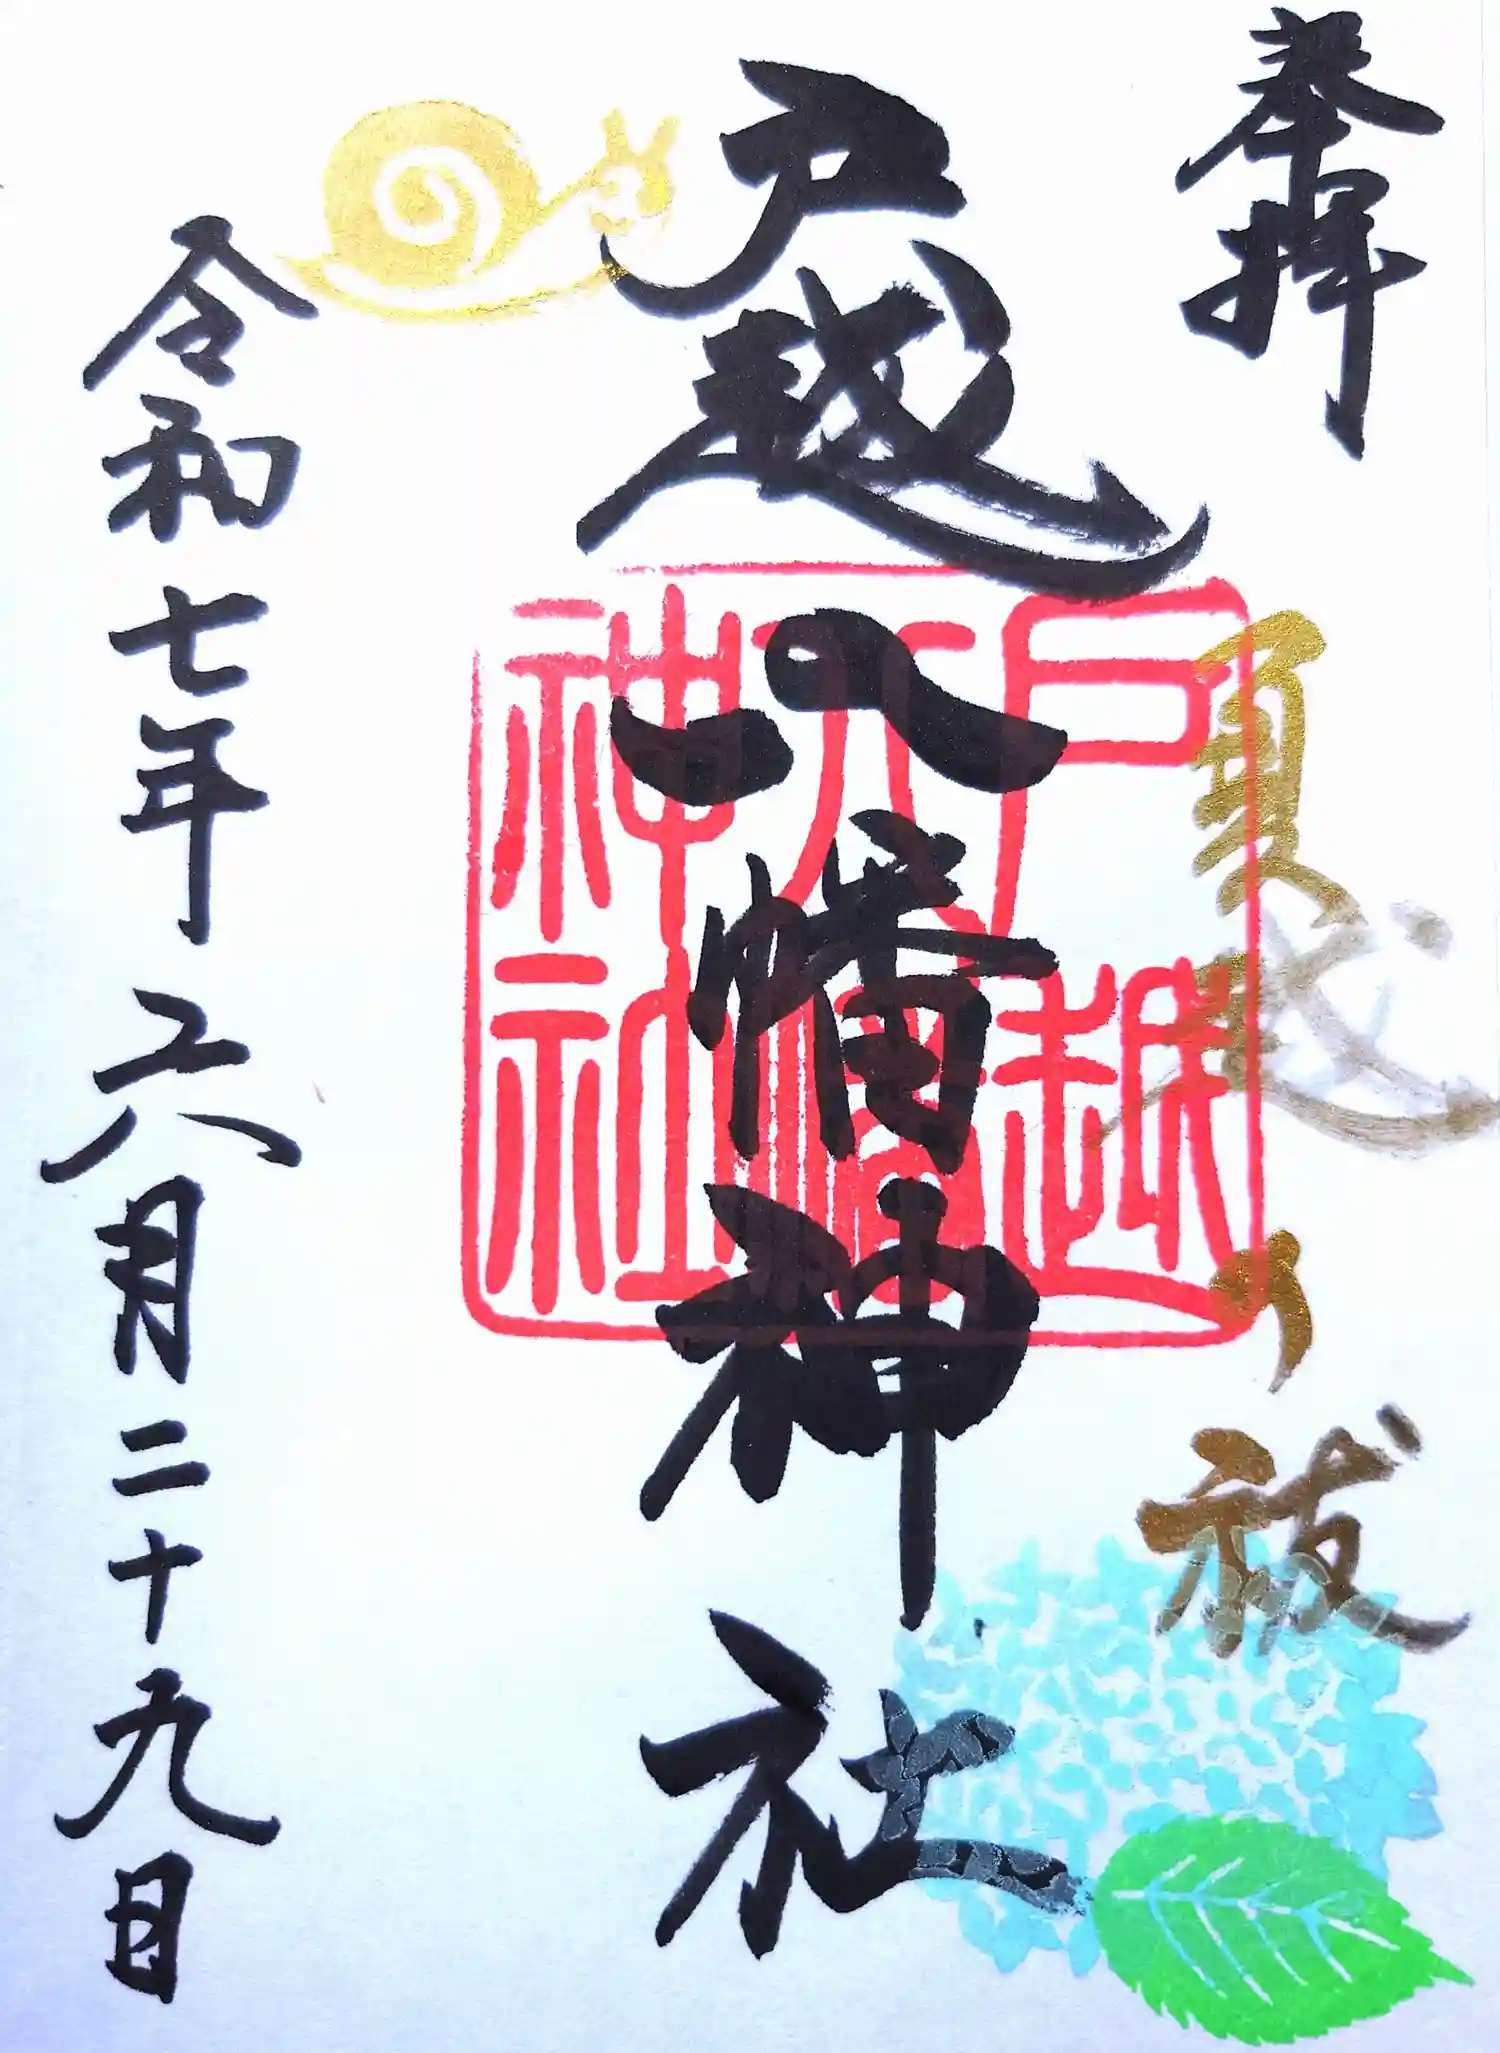 奉拝
夏越り祓
戸越八幡神社
戸越
八幡
神社
令和七年六月二十九日